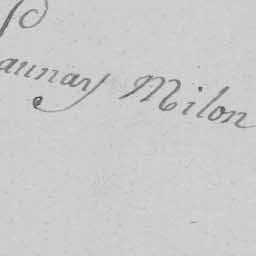 aunay Milon